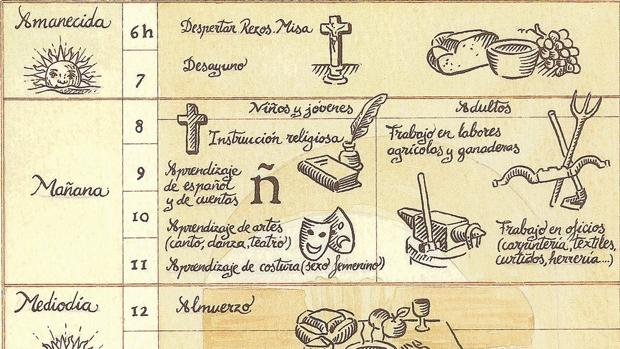 Amanecida
6h
Despertar Rezos. Misa
7
Desayuno
Mañana
8
Niños y jóvenes
Adultos
Instrucción religiosa
Trabajo en labores
agrícolas y ganaderas
9
Aprendizaje
de español
y de cuentas
ñ
10
Aprendizaje de artes
(canto, danza, teatro)
Trabajo en oficios
(carpintería, textiles,
curtidos, herrería...)
11
Aprendizaje de costura (sexo femenino)
Mediodía
12
Almuerzo